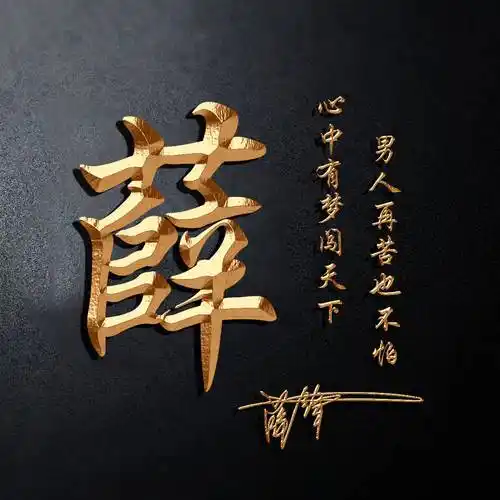 薛
男人再苦也不怕
心中有梦闯天下